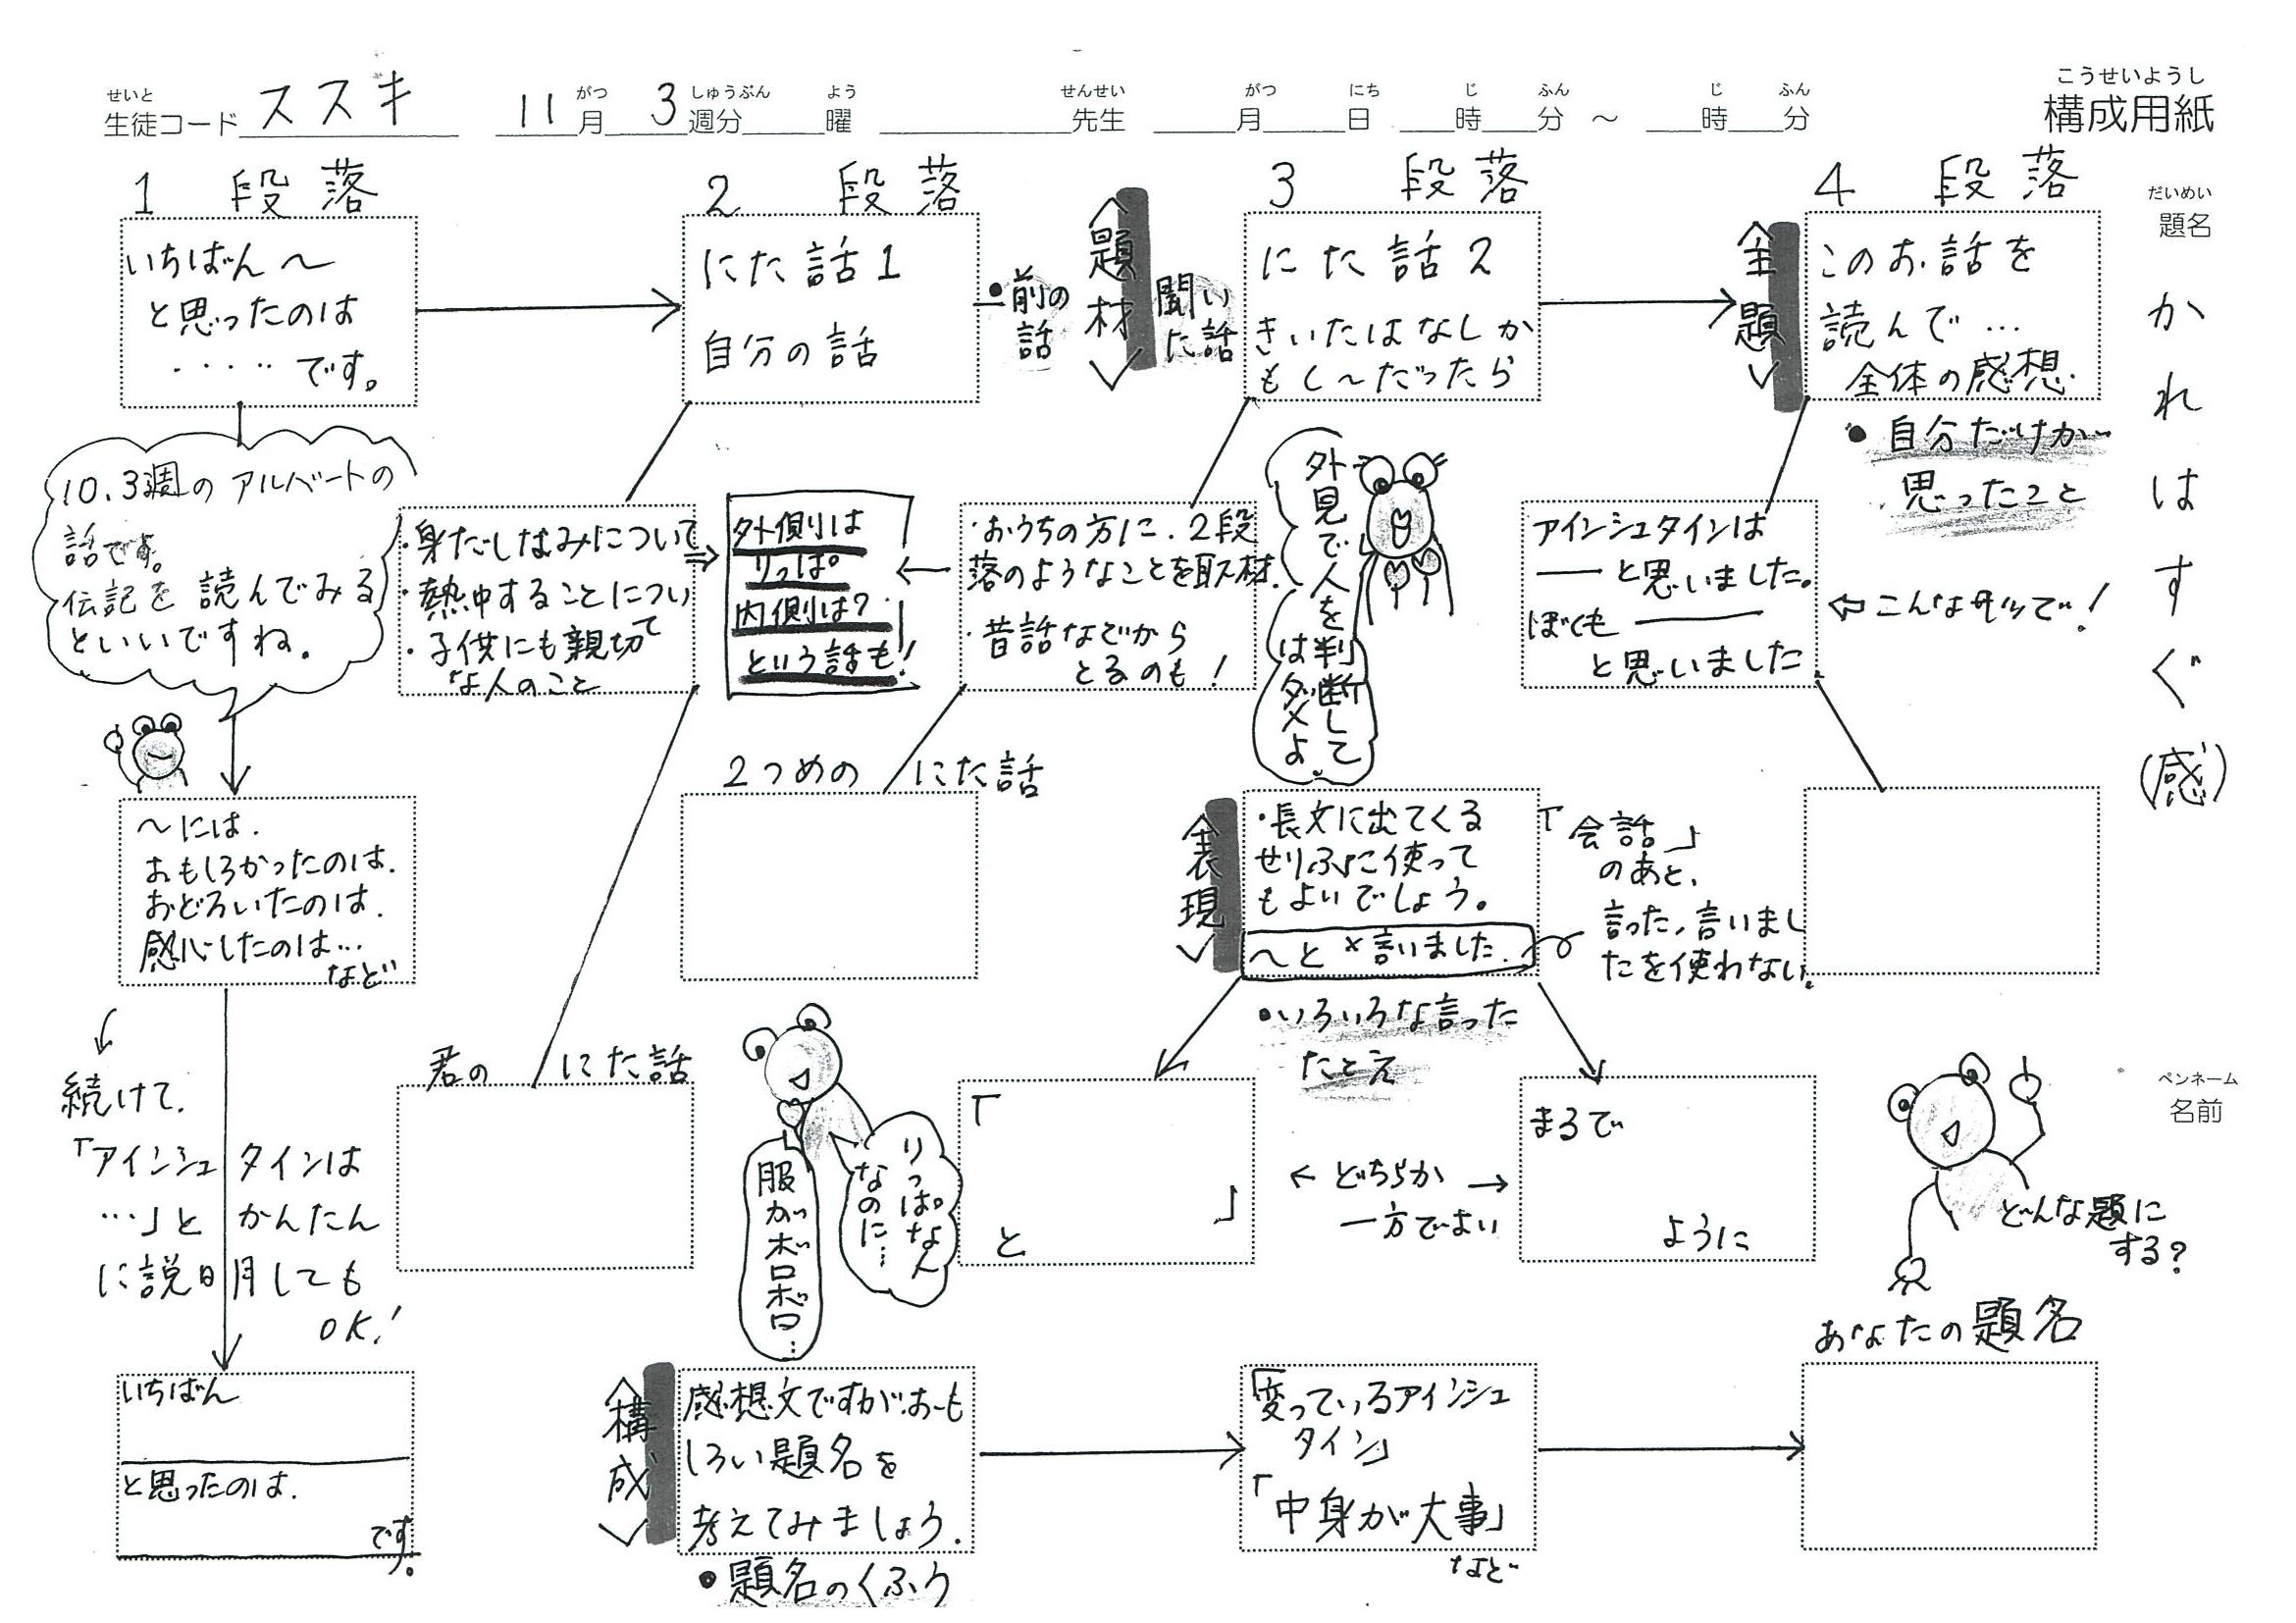 せいと
生徒コード ススキ
11 がつ 月 3 しゅうぶん 週分 よう 曜
せんせい 先生
がつ 月 にち 日 じ 時 ふん 分 ～ じ 時 ふん 分
こうせいようし
構成用紙
だいめい
題名
かれはすぐ(感)
ペンネーム
名前
1 段落
いちばん～
と思ったのは
・・・・・です。
10.3週のアルバートの
話です。
伝記を読んでみる
といいですね。
～には.
おもしろかったのは.
おどろいたのは.
感心したのは…
など
続けて.
「アインシュタインは
…」とかんたん
に説明しても
OK!
いちばん
と思ったのは.
です。
2 段落
にた話1
自分の話
・前の
話
＜題材＞
聞い
た話
・身だしなみについて
・熱中することについて
・子供にも親切
な人のこと
外側は
りっぱ。
内側は?
という話も!
君の にた話
3 段落
にた話2
きいたはなしか
もし～だったら
・おうちの方に.2段
落のようなことを取材.
・昔話などから
とるのも!
2つめの にた話
外見で人を
判断して
はダメよ。
＜表現＞
・長文に出てくる
せりふに使って
もよいでしょう。
～と×言いました.
「会話」
のあと、
言った,言いまし
たを使わない。
・いろいろな言った
たとえ
「
」
と
← どちらか →
一方でよい
まるで
ように
りっぱな人
なのに…
服がボロボロ…
4 段落
＜全題＞
このお話を
読んで…
全体の感想.
・自分だけが
思ったこと
アインシュタインは
――と思いました。
ぼくも――
と思いました.
⇦こんな形で!
どんな題に
する?
あなたの題名
＜構成＞
感想文ですが.おも
しろい題名を
考えてみましょう.
・題名のくふう
「変っているアインシュ
タイン」
「中身が大事」
など